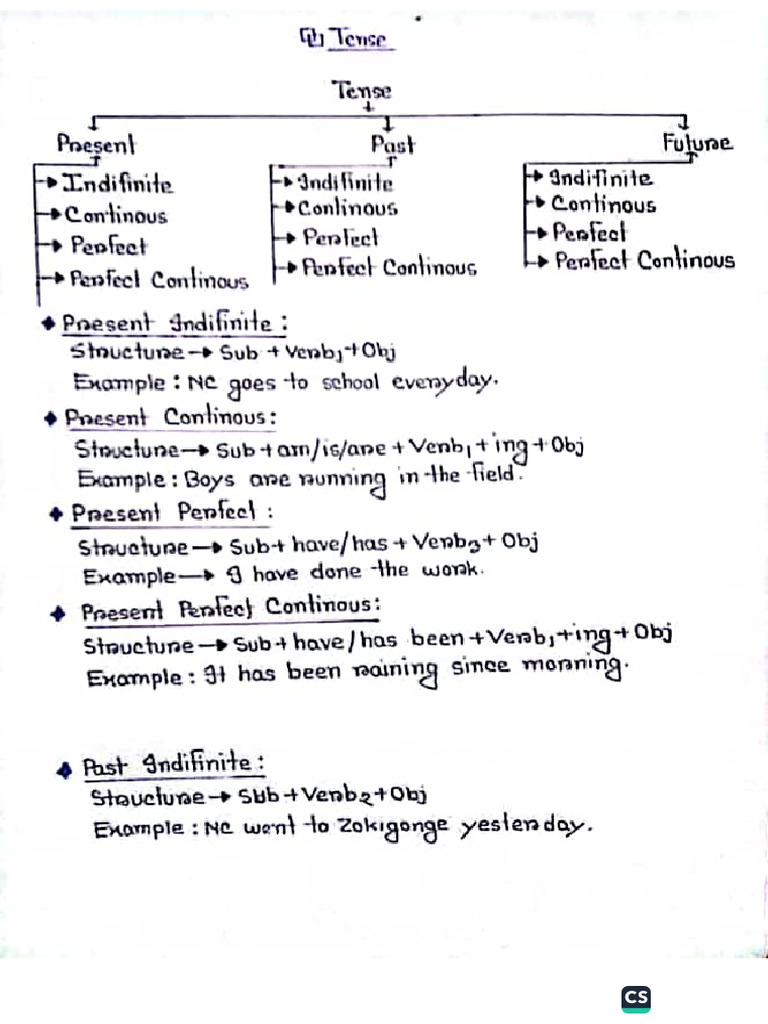 Tense
Tense
Present Past Future
Indifinite
Continous
Perfect
Perfect Continous
Indifinite
Continous
Perfect
Perfect Continous
Indifinite
Continous
Perfect
Perfect Continous
Present Indifinite:
Structure → Sub + Verb₁ + Obj
Example: NC goes to school everyday.
Present Continous:
Structure → Sub + am/is/are + Verb₁ + ing + Obj
Example: Boys are running in the field.
Present Perfect:
Structure → Sub + have/has + Verb₃ + Obj
Example → I have done the work.
Present Perfect Continous:
Structure → Sub + have/has been + Verb₁ + ing + Obj
Example: It has been raining since morning.
Past Indifinite:
Structure → Sub + Verb₂ + Obj
Example: NC went to Zokigonge yesterday.
CS